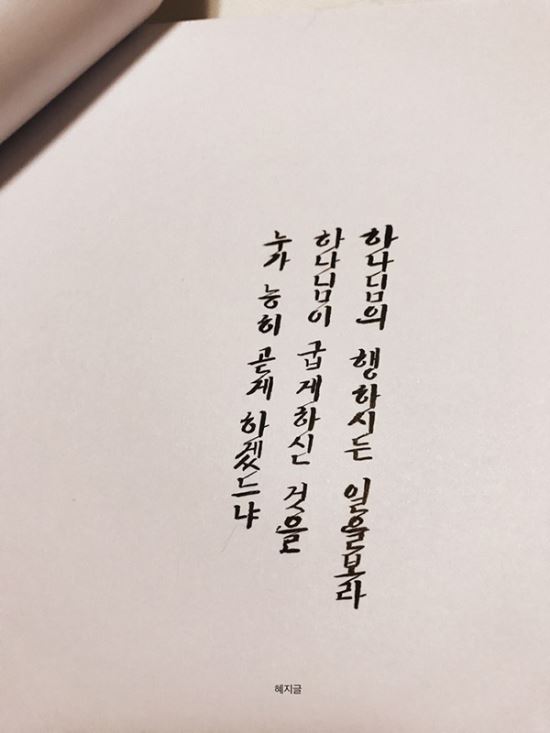 하나님의 행하시는 일을보라
하나님이 굽게하신 것을
누가 능히 곧게 하겠느냐
혜지글